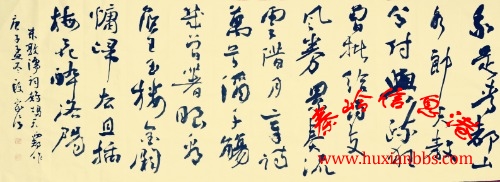 我是清都山
水郎天教
分付與疏狂
曾批給雨支
風券累奏流
雲借月章詩
萬首酒千觴
幾曾著眼看
侯王玉樓金闕
慵歸去且插
梅花醉洛陽
朱敦儒詞鷓鴣天西都作
庚子孟
秦岭信息港
www.huxianbbs.com